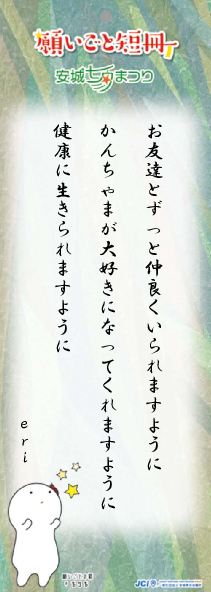 願いごと短冊
安城七夕まつり
お友達とずっと仲良くいられますように
かんちゃまが大好きになってくれますように
健康に生きられますように
eri
JCI